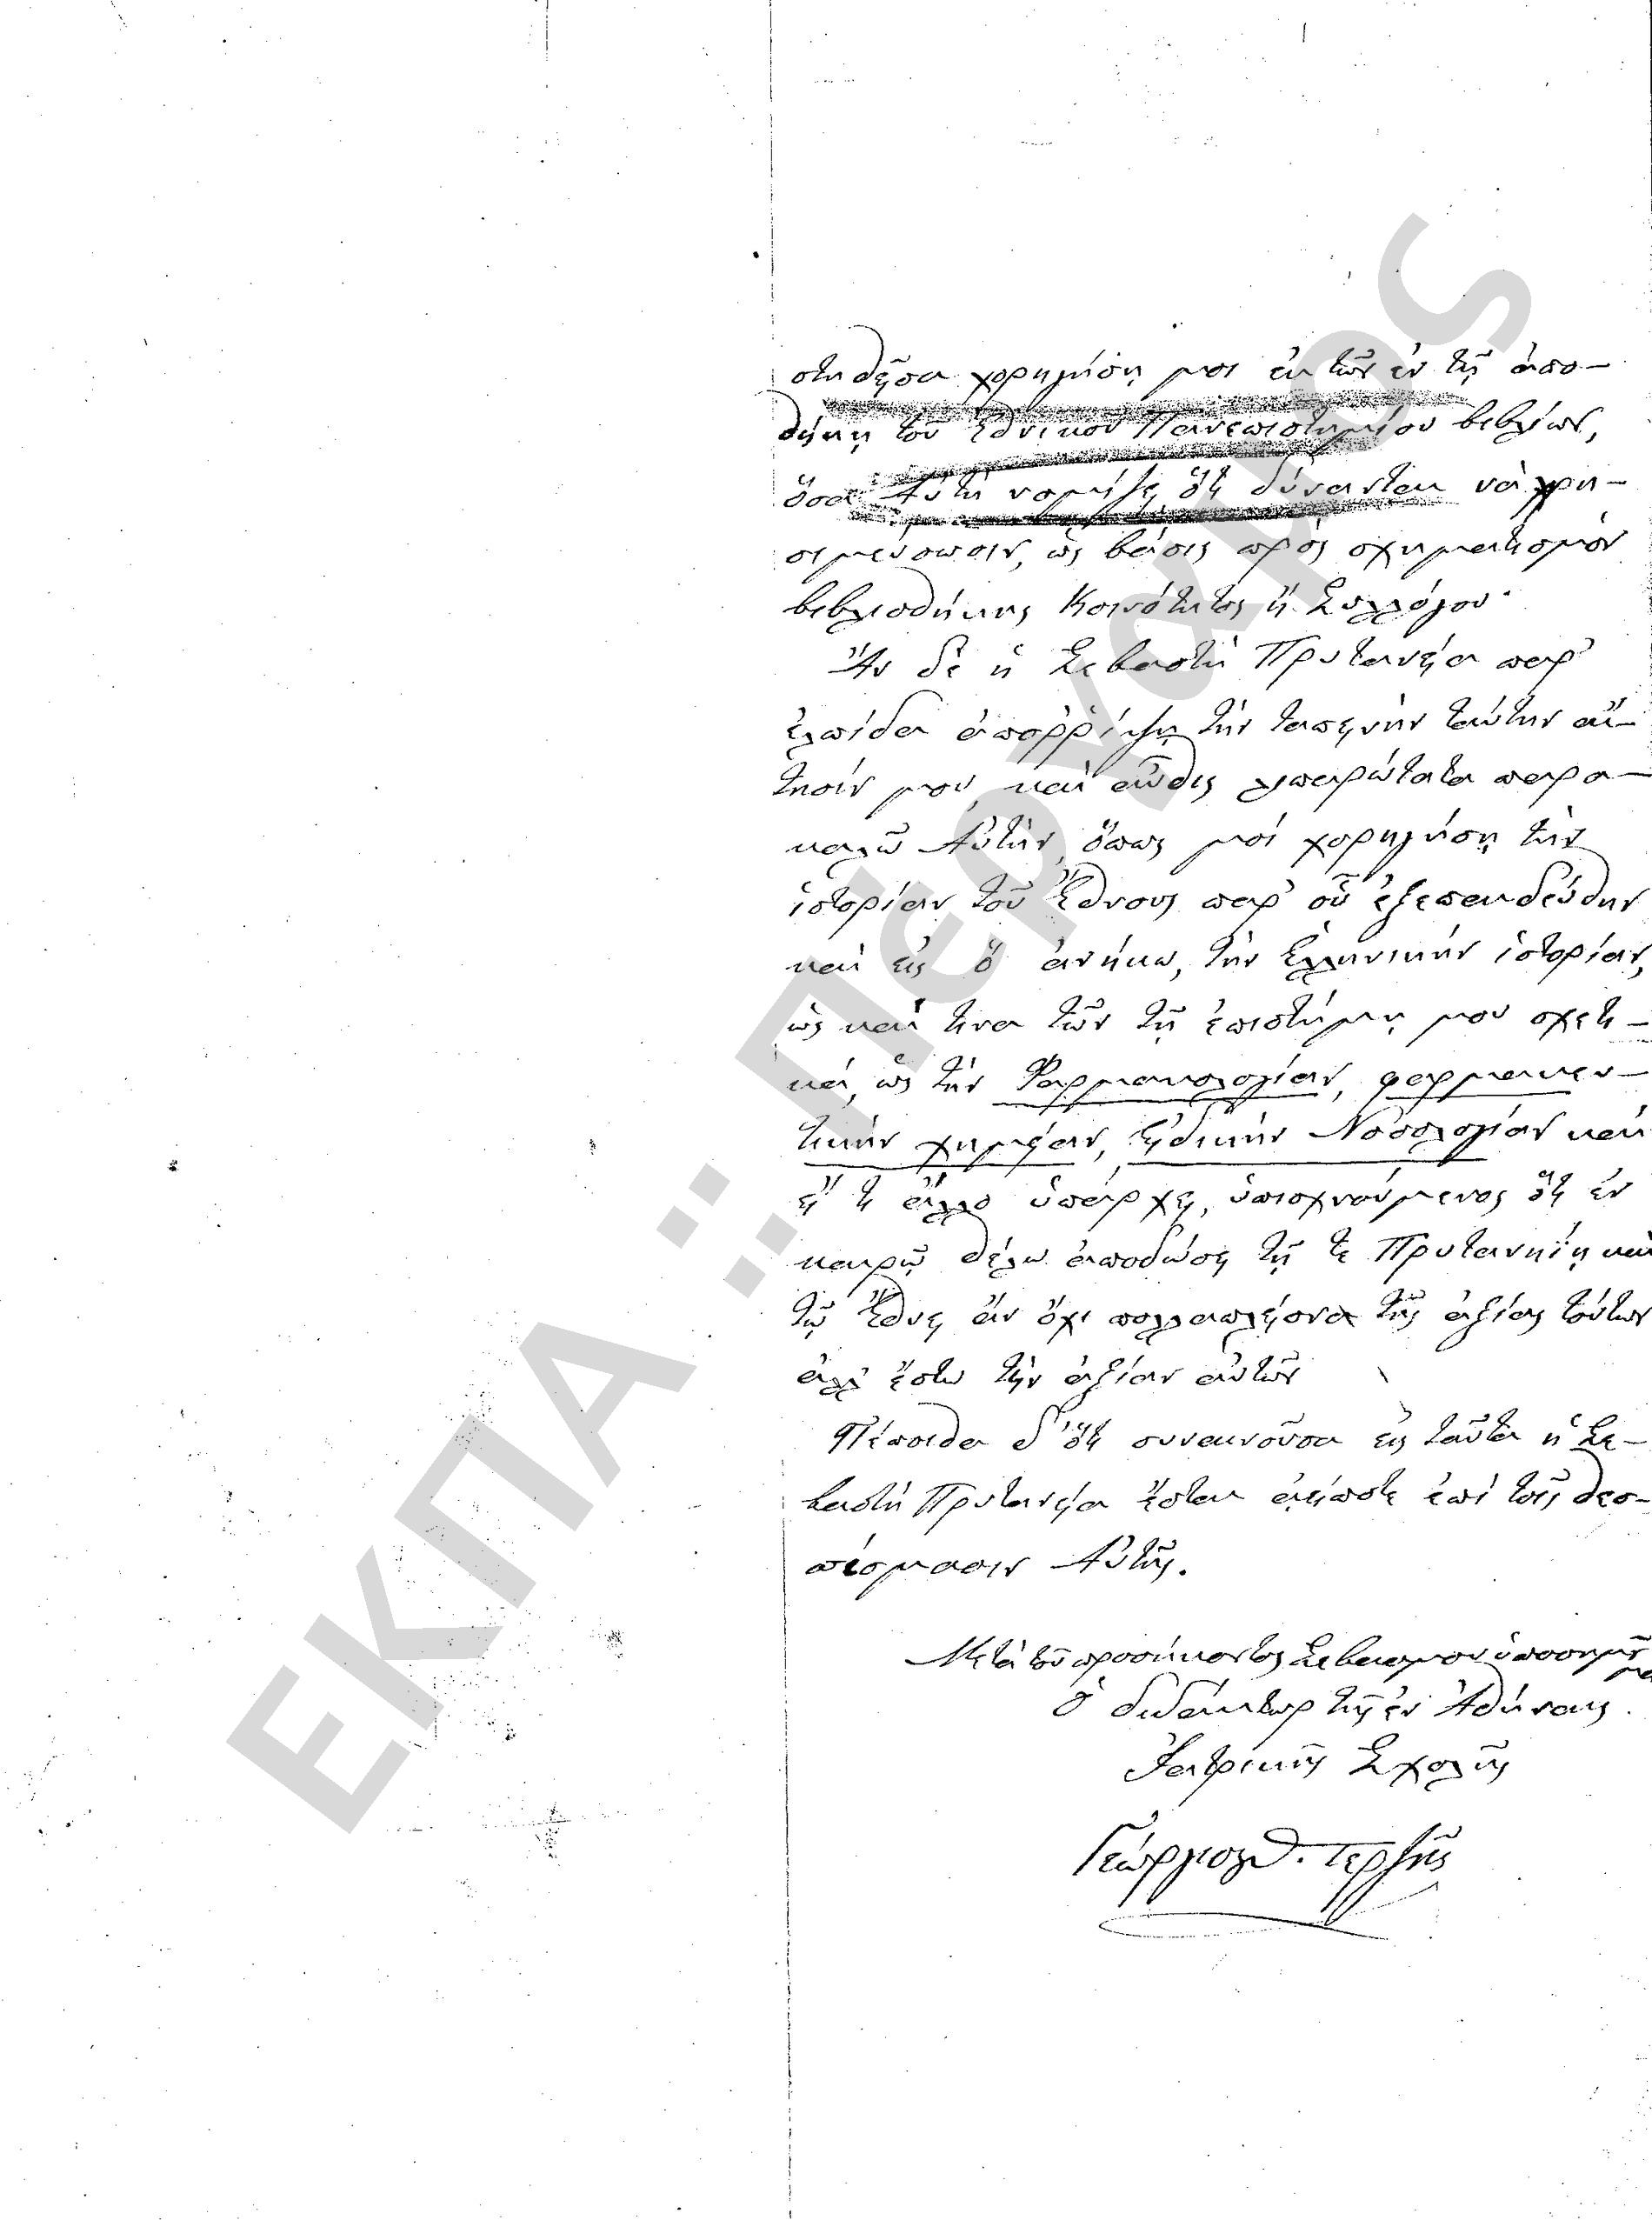 σταθεῖσα χορηγήσῃ μοι ἐκ τῶν ἐν τῇ ἀπο-
θήκῃ τοῦ Ἐθνικοῦ Πανεπιστημίου βιβλίων,
ὅσα Αὐτὴ νομίζει ὅτι δύνανται νὰ χρη-
σιμεύσωσιν, ὡς βάσις πρὸς σχηματισμὸν
βιβλιοθήκης Κοινότητος ἢ Συλλόγου.
Ἂν δὲ ἡ Σεβαστὴ Πρυτανεία παρ'
ἐλπίδα ἀπορρίψῃ τὴν ταπεινὴν ταύτην αἴ-
τησίν μου, καὶ αὖθις λιπαρώτατα παρα-
καλῶ Αὐτὴν, ὅπως μοὶ χορηγήσῃ τὴν
ἱστορίαν τοῦ Ἔθνους παρ' οὗ ἐξεπαιδεύθην
καὶ εἰς ὃ ἀνήκω, τὴν Ἑλληνικὴν ἱστορίαν,
ὡς καὶ τινα τῶν τῇ ἐπιστήμῃ μου σχετι-
κά, ὡς τὴν Φαρμακολογίαν, φαρμακευ-
τικὴν χημείαν, Εἰδικὴν Νοσολογίαν καὶ
εἴ τι ἄλλο ὑπάρχει, ὑπισχνούμενος ὅτι ἐν
καιρῷ θέλω ἀποδώσει τῇ τε Πρυτανηΐῃ καὶ
τῷ Ἔθνει ἂν ὄχι πολλαπλείονα τῆς ἀξίας τούτων
ἀλλ' ἔστω τὴν ἀξίαν αὐτῶν
Πέποιθα δ' ὅτι συναινοῦσα εἰς ταῦτα ἡ Σε-
βαστὴ Πρυτανεία ἔσται ἀείποτε ἐπὶ τοῖς θεσ-
πίσμασιν Αὐτῆς.
Μετὰ τοῦ προσήκοντος Σεβασμοῦ ὑποσημειοῦμαι
ὁ διδάκτωρ τῆς ἐν Ἀθήναις
Ἰατρικῆς Σχολῆς
Γεώργιος Θ. Τερζῆς
ΕΚΠΑ:: Πέργαμος